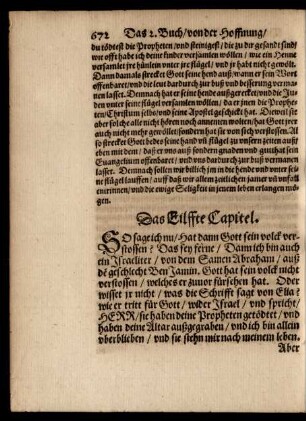 672 Das 2. Buch/von der Hoffnung/
du tödtest die Propheten/vnd steinigest/ die zu dir gesandt sind/
wie offt habe ich deine kinder versamlen wöllen/ wie ein Henne
versamlet jre hünlein vnter jre flügel/ vnd jr habt nicht gewölt.
Dann damals strecket Gott seine hend auß/wann er sein Wort
offenbaret/vnd die leut dardurch zur buß vnd besserung verma-
nen lasset. Demnach hat er seine hende außgerecket/vnd die Ju-
den vnter seine flügel versamlen wöllen/ da er jnen die Prophe-
ten/Christum selbs/vnd seine Apostel geschickt hat. Dieweil sie
aber solche alle nicht hören noch annemen wolten/hat Gott jrer
auch nicht mehr gewöllet/sondern hat sie von sich verstossen. Al-
so strecket Gott bede seine hand vñ flügel zu vnsern zeiten auß/
eben mit dem/ daß er vns auß sondern gnaden vnd gunst das sein
Euangelium offenbaret/ vnd vns dardurch zur buß vermanen
lasser. Demnach sollen wir billich jm in die hende vnd vnter sei-
ne flügel lauffen/ auff daß wir allem zeitlichen jamer vñ vnfall
entrinnen/vnd die ewig Seligkeit in jenem leben erlangen mö-
gen.
Das Eilffte Capitel.
SO sage ich nu/Hat dann Gott sein volck ver-
stossen? Das sey ferne/ Dann ich bin auch
ein Israeliter/ von dem Samen Abraham/ auß
dẽ geschlecht Ben Jamin. Gott hat sein volck nicht
verstossen/ welches er zuuor fürsehen hat. Oder
wisset jr nicht/ was die Schrifft sagt von Elia?
wie er tritt für Gott/ wider Israel/ vnd spricht/
HERR/sie haben deine Propheten getödtet/ vnd
haben deine Altar außgegraben/ vnd ich bin allein
vberblieben/ vnd sie stehn mir nach meinem leben.
Aber